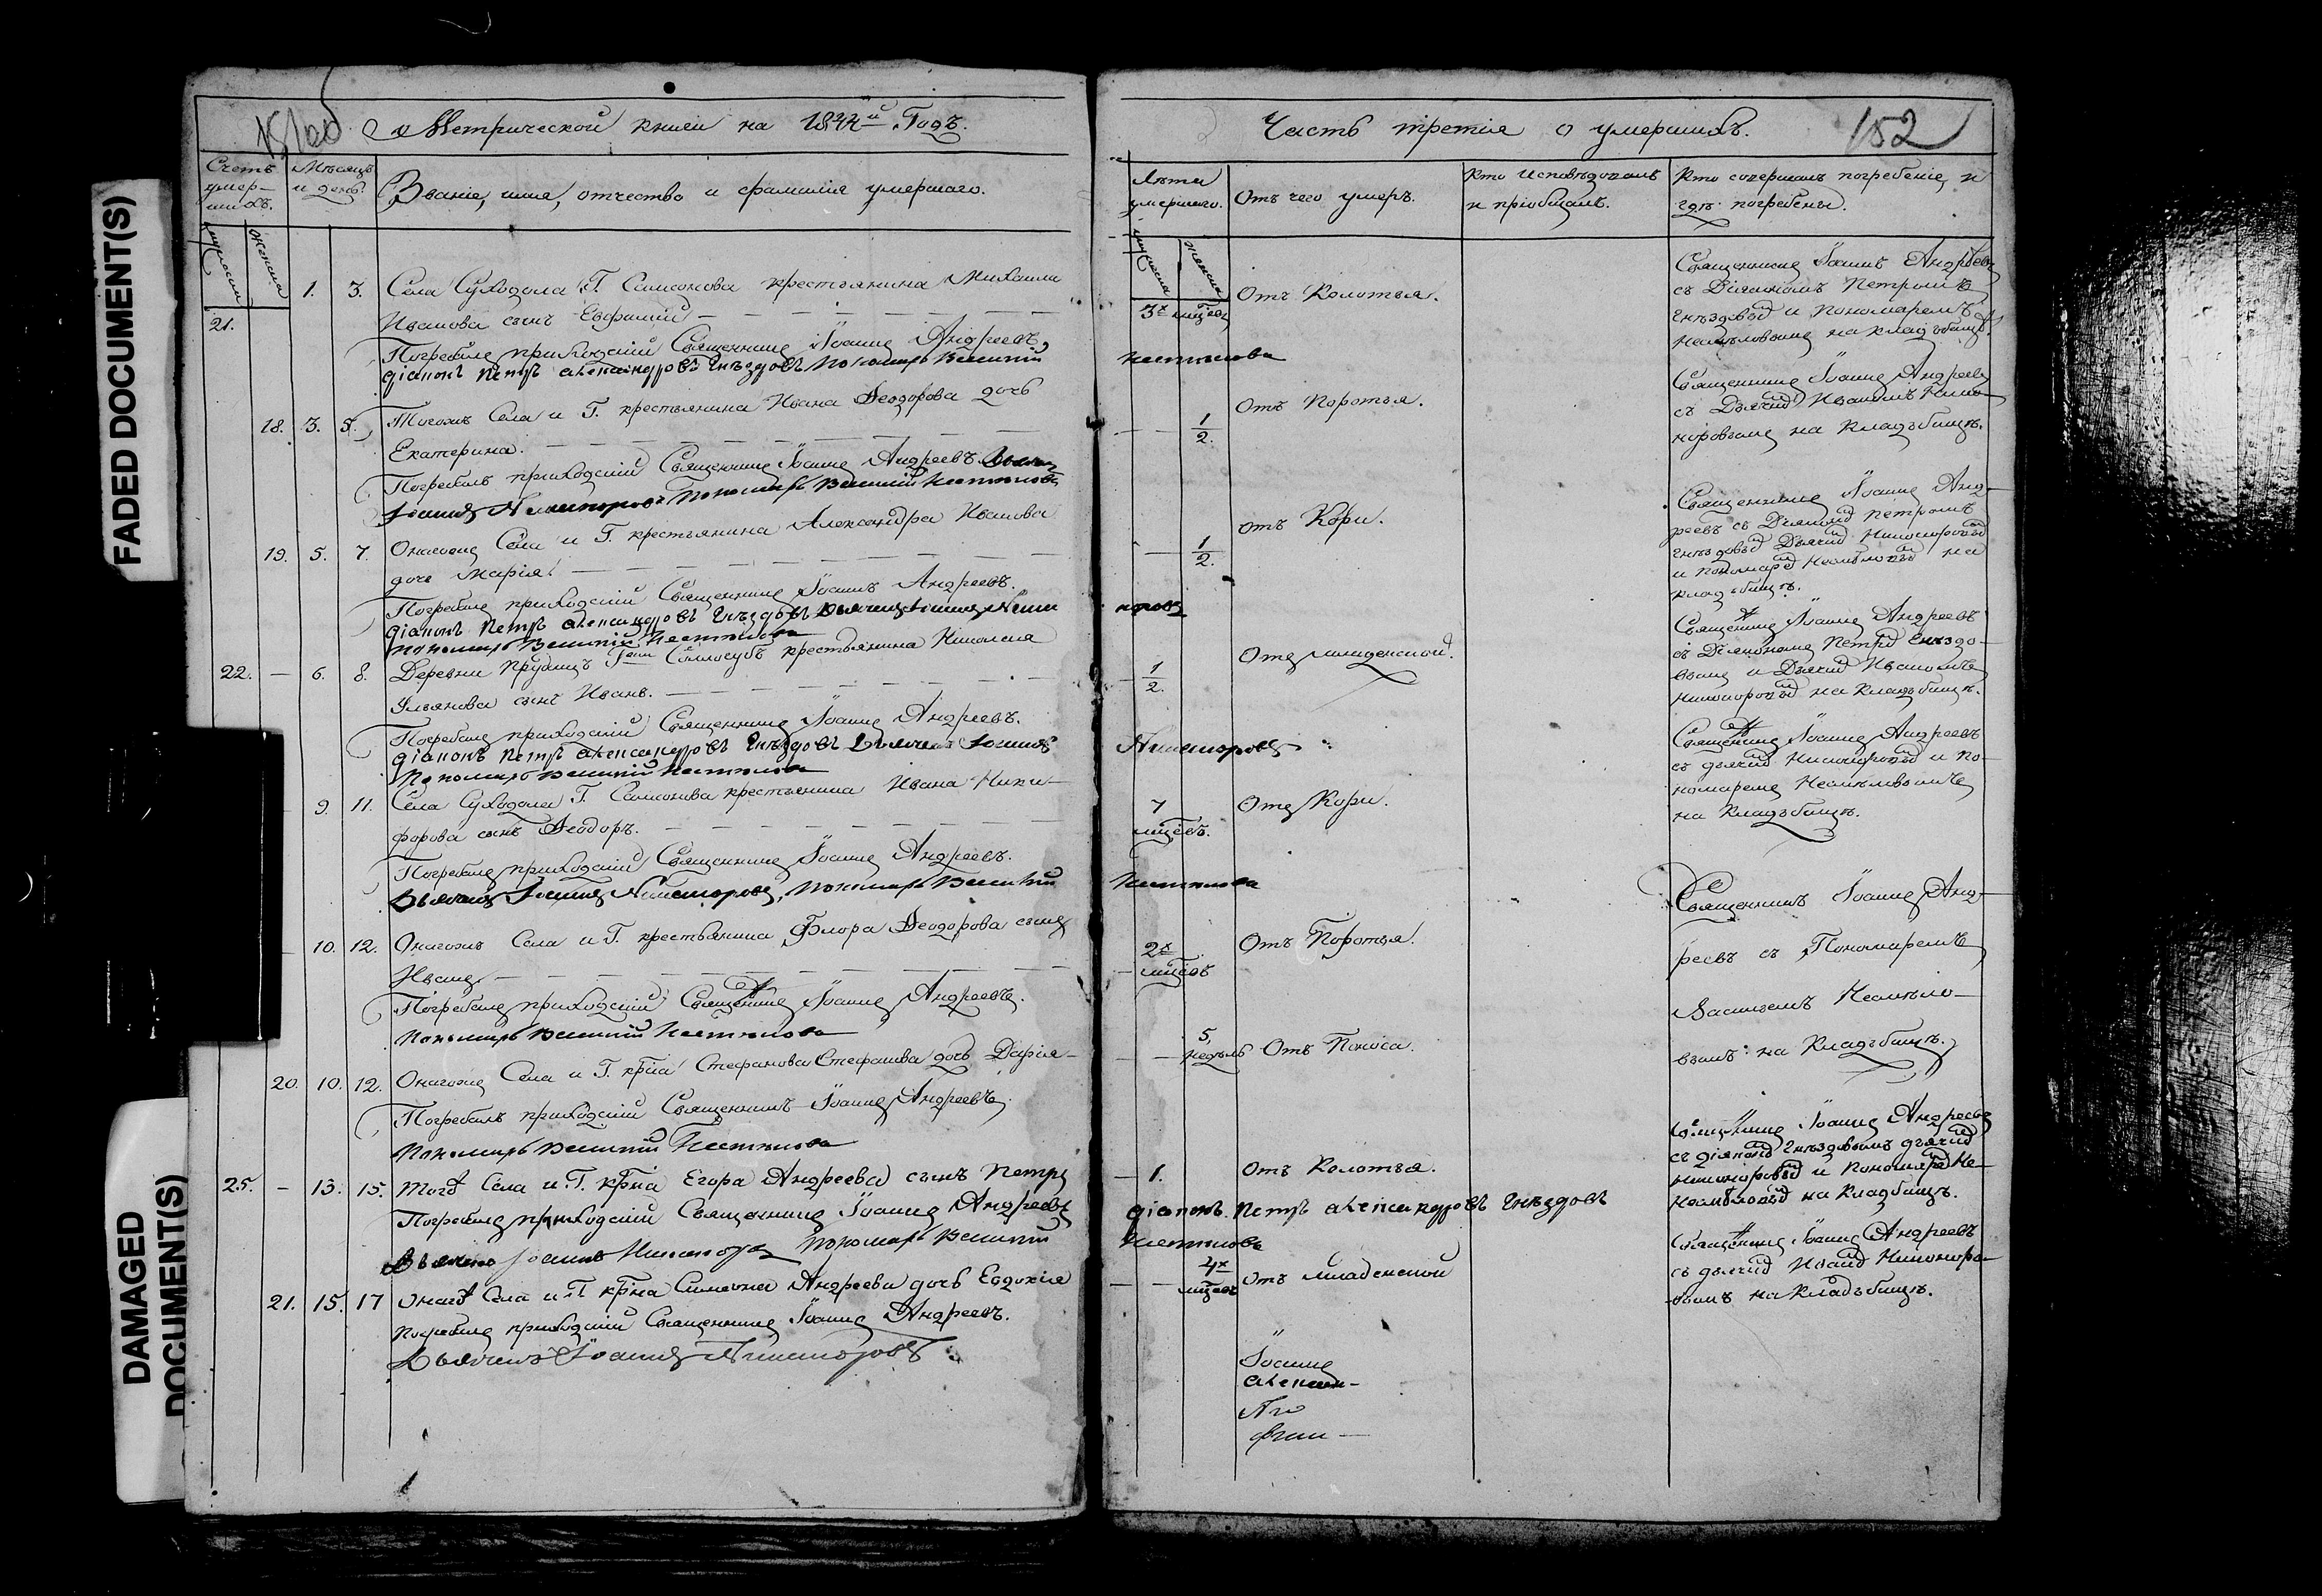 FADED DOCUMENT(S)
DAMAGED DOCUMENT(S)
Метрической книги на 1844й Годъ.
Счетъ умер-шихъ.
Мѣсяцъ и день.
Званіе, имя, отчество и фамилія умершаго.
мужеска
женска
21.
1. 3. Села Суходола Г. Самсонова крестьянина Михаила
Иванова сынъ Евфимій
Погребалъ приходскій Священникъ Іоаннъ Андреевъ,
діаконъ Петръ Александровъ Гнѣздовъ Пономарь Василій
18. 3. 5. Тогожъ Села и Г. крестьянина Ивана Ѳеодорова дочь
Екатерина.
Погребалъ приходскій Священникъ Іоаннъ Андреевъ. Дьячекъ
Іоаннъ Никаноровъ Пономарь Василій
19. 5. 7. Онагожъ Села и Г. крестьянина Александра Иванова
дочь Марія.
Погребалъ приходскій Священникъ Іоаннъ Андреевъ.
діаконъ Петръ Александровъ Гнѣздовъ Дьячекъ Іоаннъ Ника
Пономарь Василій
22. — 6. 8. Деревни Прудищъ крестьянина Николая
Ульянова сынъ Иванъ.
Погребалъ приходскій Священникъ Іоаннъ Андреевъ.
діаконъ Петръ Александровъ Гнѣздовъ Дьячекъ Іоаннъ
Пономарь Василій
9. 11. Села Суходола Г. Самсонова крестьянина Ивана Ники-
форова сынъ Ѳеодоръ.
Погребалъ приходскій Священникъ Іоаннъ Андреевъ.
Дьячекъ Іоаннъ Никаноровъ, Пономарь Василій
10. 12. Онагожъ Села и Г. крестьянина Флора Ѳеодорова сынъ
Иванъ.
Погребалъ приходскій Священникъ Іоаннъ Андреевъ.
Пономарь Василій
20. 10. 12. Онагожъ Села и Г. крна Стефанова дочь Дарія
Погребалъ приходскій Священникъ Іоаннъ Андреевъ.
Пономарь Василій
25. — 13. 15. Тогожъ Села и Г. крна Егора Андреева сынъ Петръ
Погребалъ приходскій Священникъ Іоаннъ Андреевъ
Дьячекъ Іоаннъ Никаноровъ Пономарь Василій
21. 15. 17 Онагожъ Села и Г. крна Симеона Андреева дочь Евдокія
Погребалъ приходскій Священникъ Іоаннъ Андреевъ.
Дьячекъ Іоаннъ Никаноровъ
Часть третія о умершихъ.
152
Лѣта умершаго.
Отъ чего умеръ.
Кто исповѣдовалъ и пріобщалъ.
Кто совершалъ погребеніе и гдѣ погребены.
мужеска
женска
3х мцевъ
Отъ Колотья.
Священникъ Іоаннъ Андреевъ
съ Діакономъ Петромъ
Гнѣздовымъ и Пономаремъ
на кладбищѣ.
1/2.
Отъ Поротья.
Священникъ Іоаннъ Андреевъ
съ Дьячкомъ Иваномъ Ника-
норовымъ на Кладъбищѣ.
1/2.
отъ Кори.
Священникъ Іоаннъ Анд-
реевъ съ Діакономъ Петромъ
Гнѣздовымъ Дьячкомъ Никаноровымъ
и Пономаремъ на
кладъбищѣ.
норовъ
1/2.
Отъ младенской.
Священникъ Іоаннъ Андреевъ
съ Діакономъ Петромъ Гнѣздо-
вымъ и Дьячкомъ Иваномъ
Никаноровымъ на Кладъбищѣ.
Никаноровъ
7 мцевъ.
Отъ Кори.
Священникъ Іоаннъ Андреевъ
съ дьячкомъ Никаноровымъ и По-
номаремъ
на Кладъбищѣ.
2х мцевъ
Отъ Поротья.
Священникъ Іоаннъ Анд-
реевъ съ Пономаремъ
Василіемъ
вымъ на Кладъбищѣ.
5 недѣль
Отъ Поноса.
1.
Отъ Колотья.
Священникъ Іоаннъ Андреевъ
съ діакономъ Гнѣздовымъ дьячкомъ
Никаноровымъ и Пономаремъ
на Кладбищѣ.
діаконъ Петръ Александровъ Гнѣздовъ
4х мцевъ
отъ младенской
Священникъ Іоаннъ Андреевъ
съ дьячкомъ Иваномъ Никаноро-
вымъ на Кладъбищѣ.
Іоаннъ
Алексан-